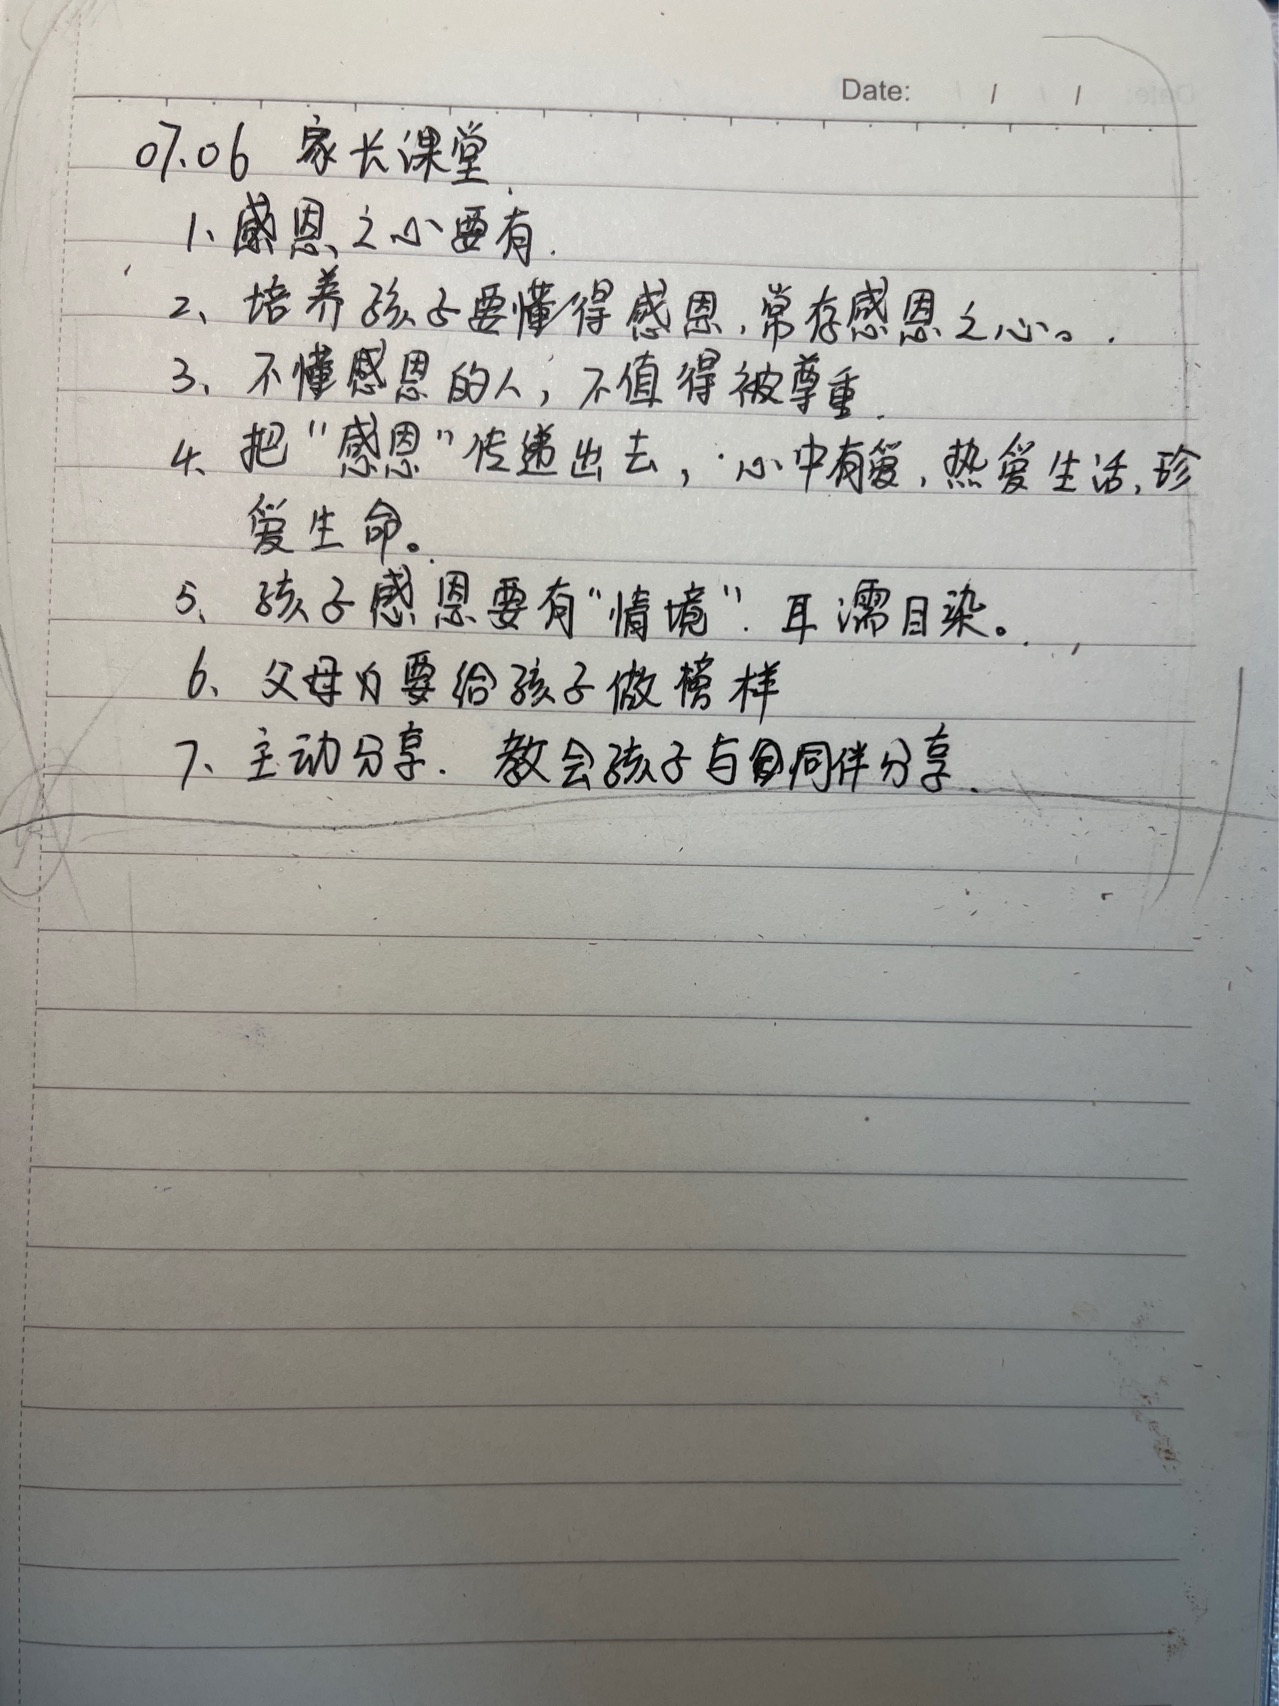 Date: / /
07.06 家长课堂.
1、感恩之心要有.
2、培养孩子要懂得感恩,常存感恩之心。.
3、不懂感恩的人,不值得被尊重.
4、把“感恩”传递出去,心中有爱,热爱生活,珍
爱生命。
5、孩子感恩要有“情境”.耳濡目染。
6、父母为要给孩子做榜样
7、主动分享.教会孩子与同伴分享.